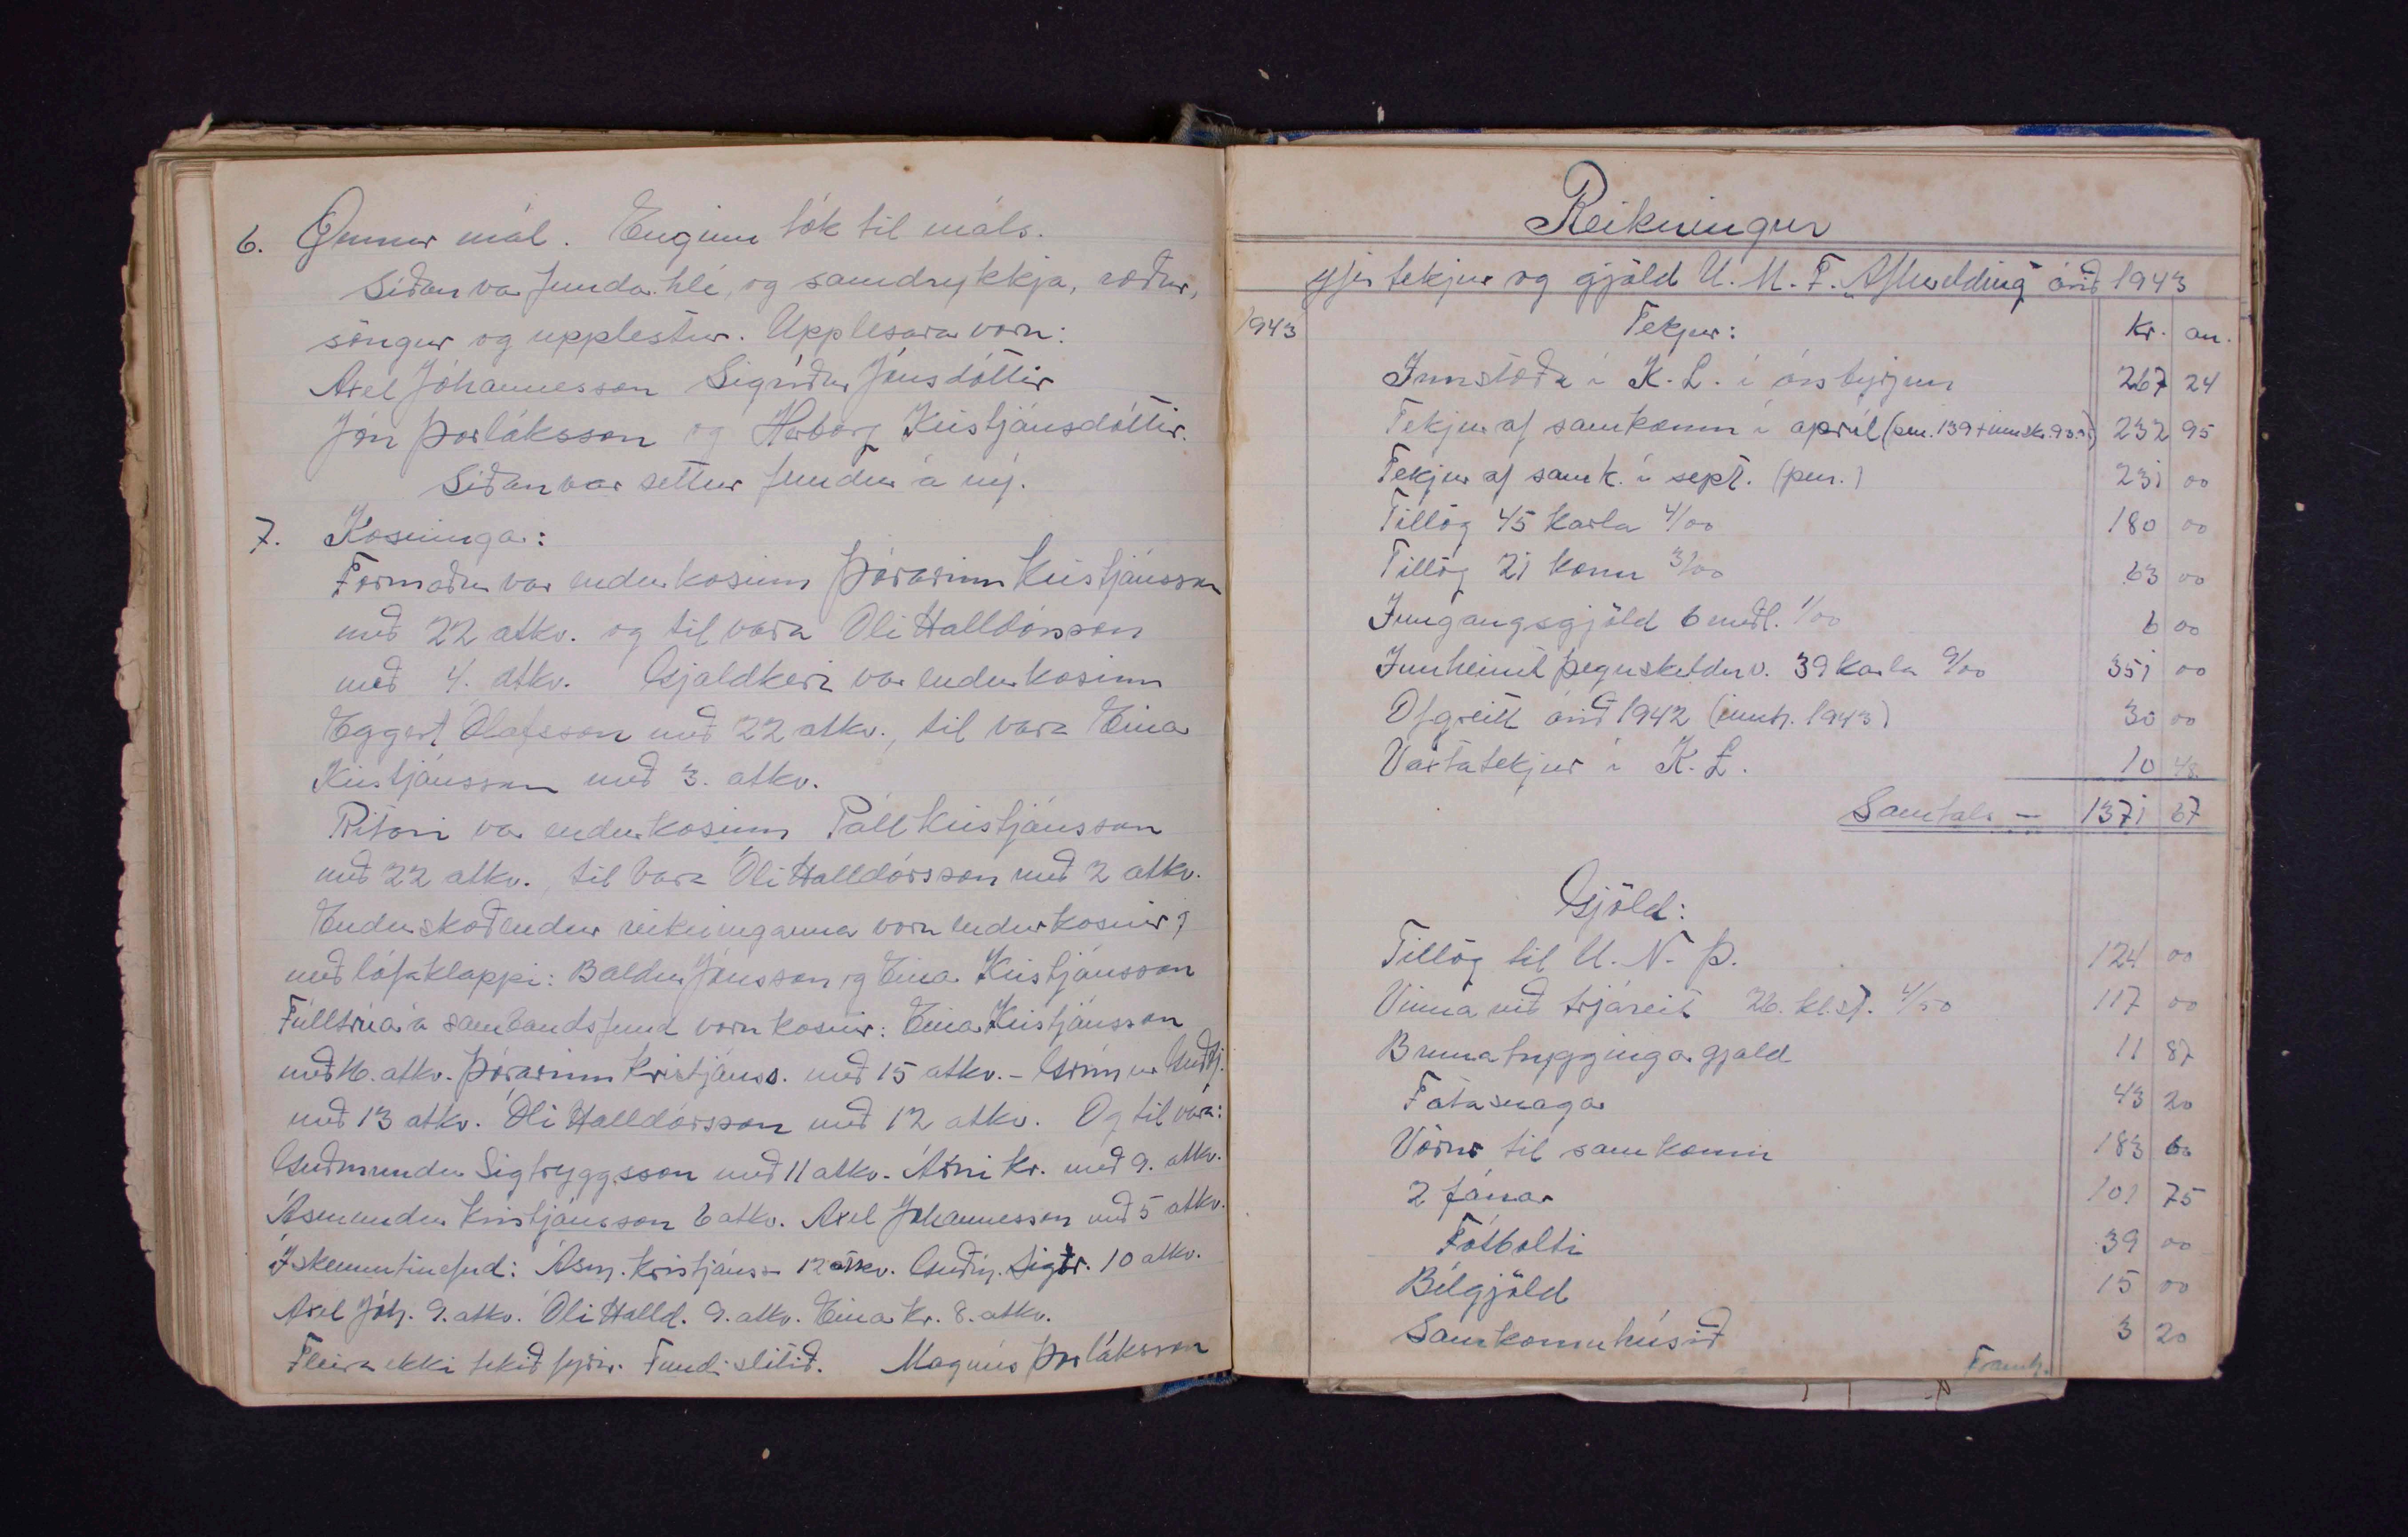 6. Önnur mál. Enginn tók til máls.
Síðan var fundarhlé, og samdrykkja, ræður,
söngur og upplestur. Upplesarar voru:
Axel Jóhannesson Sigríður Jónsdóttir
Jón Þorláksson og Herborg Kristjánsdóttir.
Síðan var settur fundur á ný.
7. Kosningar:
Formaður var endurkosinn Þórarinn Kristjánsson
með 22 atkv. og til vara Óli Halldórsson
með 4. atkv. Gjaldkeri var endurkosinn
Eggert Ólafsson með 22 atkv., til vara Einar
Kristjánsson með 3. atkv.
Ritari var endurkosinn Páll Kristjánsson
með 22 atkv., til vara Óli Halldórsson með 2 atkv.
Endurskoðendur reikninganna voru endurkosnir
með lófaklappi: Baldur Jónsson og Einar Kristjánsson
Fulltrúar á sambandsfund voru kosnir: Einar Kristjánsson
með 16. atkv. Þórarinn Kristjánss. með 15 atkv. - Grímur Guðbj.
með 13 atkv. Óli Halldórsson með 12 atkv. Og til vara:
Guðmundur Sigtryggsson með 11 atkv. Árni Kr. með 9. atkv.
Ásmundur Kristjánsson 6 atkv. Axel Jóhannesson með 5 atkv.
Í skemmtinefnd: Ásm. Kristjánss. 12 atkv. Guðm. Sigtr. 10 atkv.
Axel Jóh. 9. atkv. Óli Halld. 9. atkv. Einar Kr. 8. atkv.
Fleira ekki tekið fyrir. Fundi slitið. Magnús Þorláksson
Reikningur
yfir tekjur og gjöld U. M. F. "Afturelding" árið 1943
1943 Tekjur: kr. au.
Innstæða í K. L. í ársbyrjun 267 24
Tekjur af samkomu í apríl (pen. 139 + innsk. 93.95) 232 95
Tekjur af samk. í sept. (pen.) 231 00
Tillög 45 karla 4/00 180 00
Tillög 21 konu 3/00 63 00
Inngangsgjöld 6 meðl. 1/00 6 00
Innheimt þegnskylduv. 39 karla 9/00 351 00
Ofgreitt árið 1942 (innh. 1943) 30 00
Vaxtatekjur í K. L. 10 48
Samtals - 1371 67
Gjöld:
Tillög til U. N. Þ. 124 00
Vinna við trjáreit 26. kl.st. 4/50 117 00
Brunatryggingagjald 11 87
Fatasnagar 43 20
Vörur til samkomu 183 60
2 fánar 101 75
Fótbolti 39 00
Bílgjöld 15 00
Samkomuhúsið 3 20
Framh.